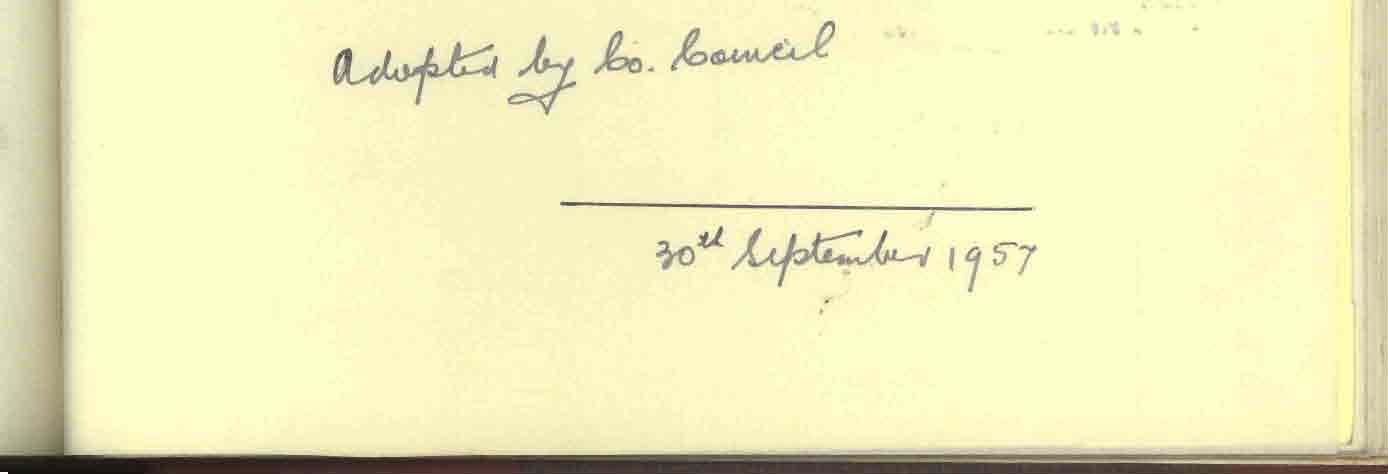 Adopted by Co. Council
30th September 1957